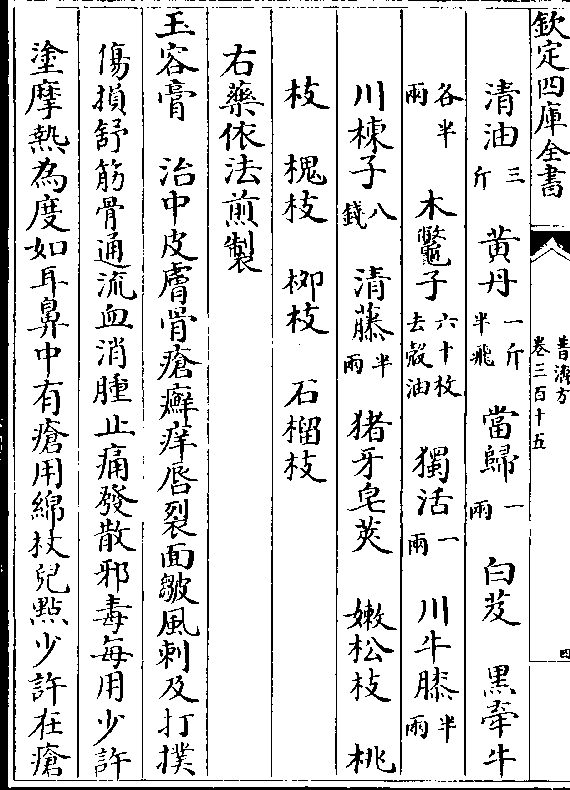 欽定四庫全書
普濟方
卷三百十五
四
清油三斤 黄丹一斤半飛 當歸一兩 白芨 黒牽牛
各半兩 木鼈子六十枚去殻油 獨活一兩 川牛膝半兩
川楝子八錢 清藤半兩 猪牙皂莢 嫩松枝 桃
枝 槐枝 柳枝 石榴枝
右藥依法煎製
玉容膏 治中皮膚骨瘡癬痒唇裂面皺風刺及打撲
傷損舒筋骨通流血消腫止痛發散邪毒每用少許
塗摩熱為度如耳鼻中有瘡用綿杖兒點少許在瘡